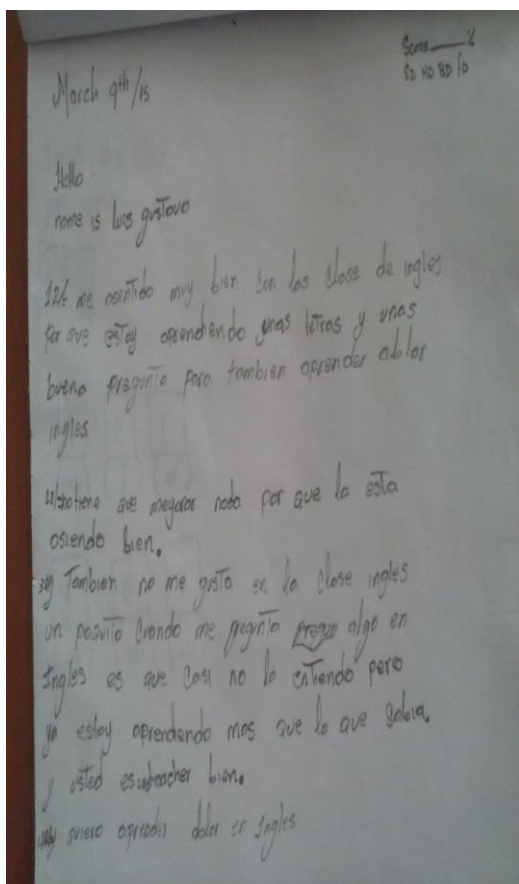 Score ____ %
SD HD BD FD
March 9th/15
Hello
name is luis gustavo
1R/: me asentido muy bien con las clase de ingles
por que estoy aprendiendo unas letras y unas
buena pregunta para tambien aprender ablar
ingles
no tiene que meyorar nada por que lo esta
asiendo bien.
3R/ Tambien no me gusta en la clase ingles
un poquito cuando me pregunta algo en
Ingles es que casi no lo entiendo pero
ya estoy aprendendo mas que lo que sabia.
y usted es teacher bien.
quiero aprender ablar en Ingles